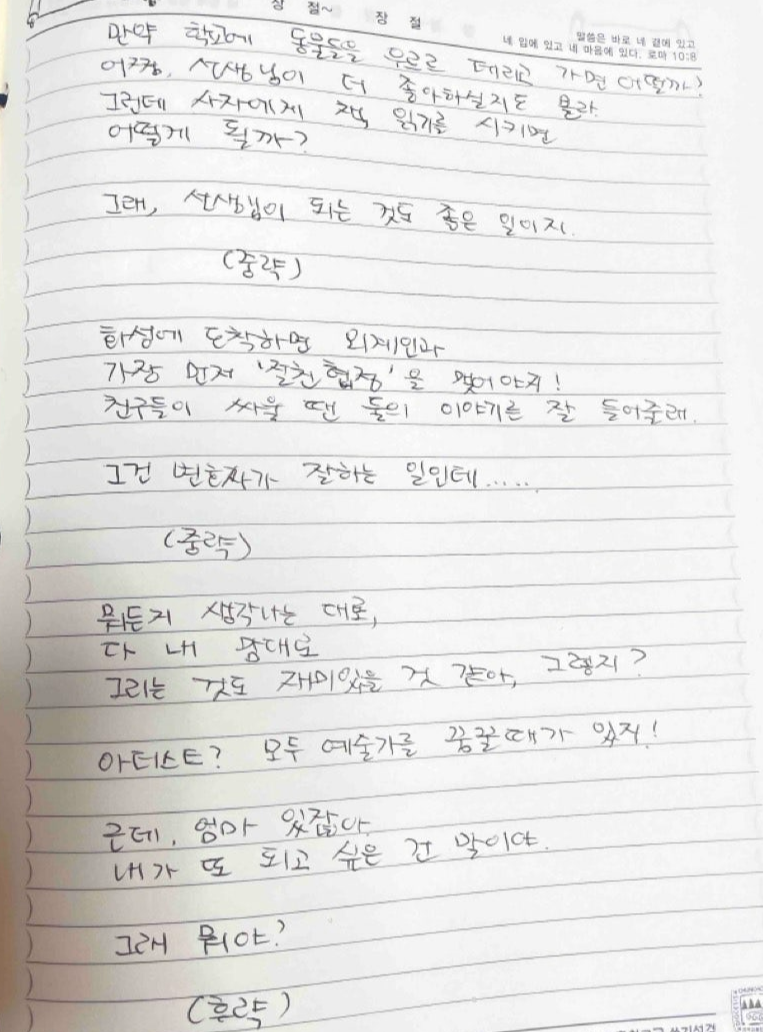 장 절~ 장 절
말씀은 바로 네 곁에 있고
네 입에 있고 네 마음에 있다. 로마 10:8
만약 학교에 동물들을 우르르 데리고 가면 어떨까?
어쩜, 선생님이 더 좋아하실지도 몰라.
그런데 사자에게 책 읽기를 시키면
어떻게 될까?
그래, 선생님이 되는 것도 좋은 일이지.
(중략)
화성에 도착하면 외계인과
가장 먼저 '절친 협정'을 맺어야지!
친구들이 싸울 땐 둘의 이야기를 잘 들어줄래.
그건 변호사가 잘하는 일인데.....
(중략)
뭐든지 생각나는 대로,
다 내 맘대로
그리는 것도 재미있을 것 같아, 그렇지?
아티스트? 모두 예술가를 꿈꿀때가 있지!
근데, 엄마 있잖아.
내가 또 되고 싶은 건 말이야.
그래 뭐야?
(후략)